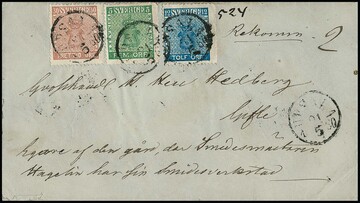 SVERIGE
FEM ÖRE
TOLF ÖRE
524
Rekomm.
2
Herr Hedberg
Gefle
UPSALA
21
5
af den gård, der Smidesmästaren
Hagelin har sin Smidesverkstad